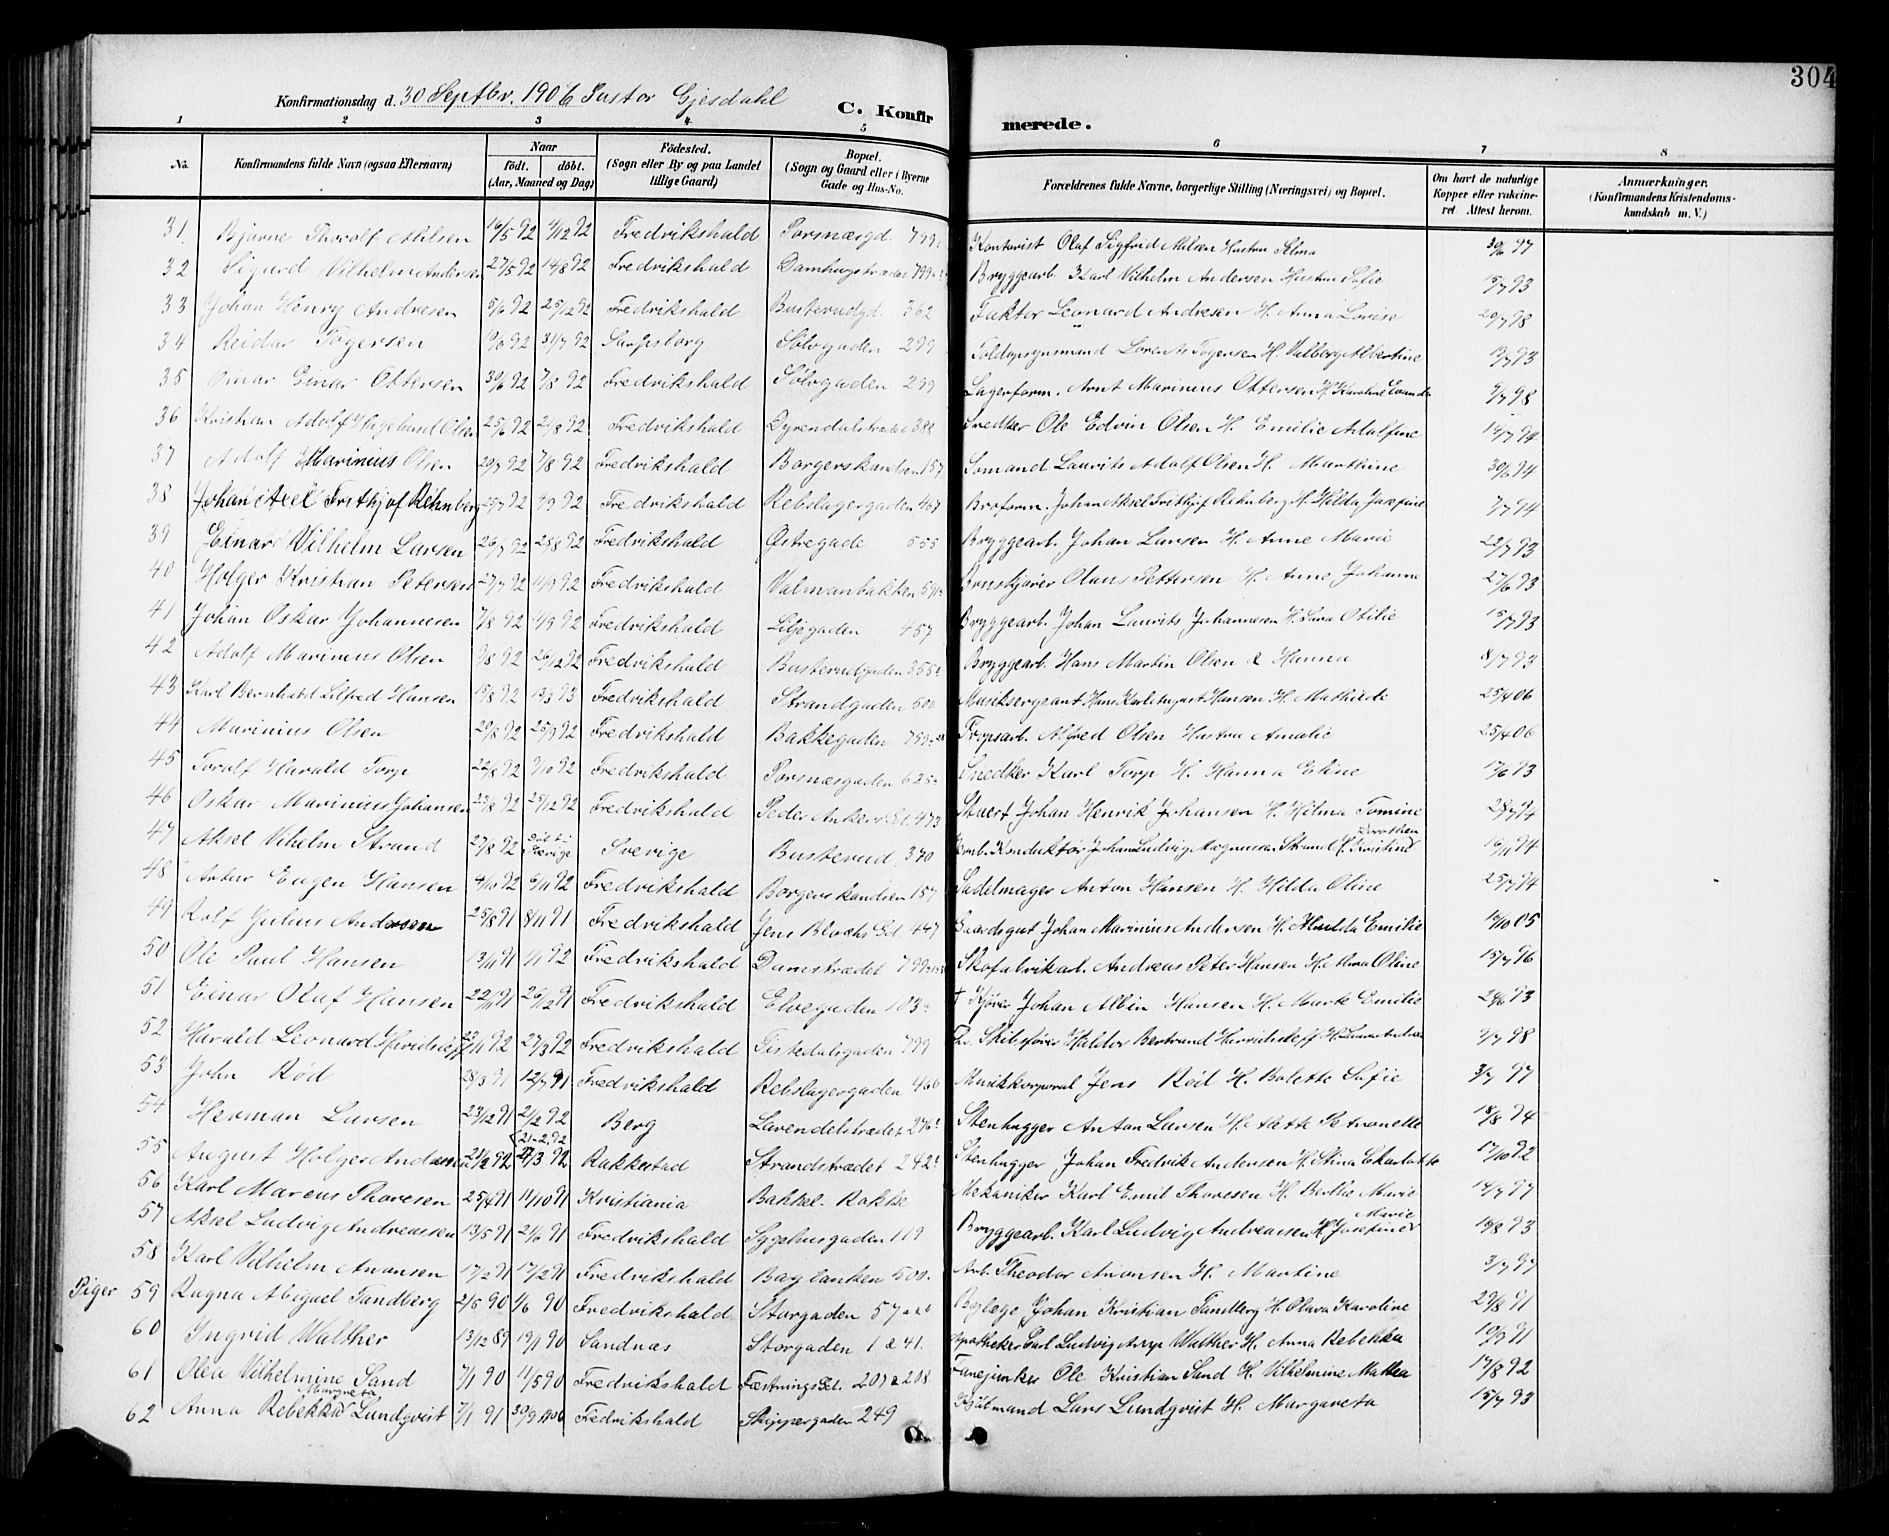 304
Konfirmationsdag d. 30 Septbr. 1906 Pastor Gjesdahl C. Konfirmerede.
1 2 3 4 5 6 7 8
No. Konfirmandens fulde Navn (ogsaa Efternavn) Naar født. døbt. (Aar, Maaned og Dag) Fødested. (Sogn eller By og paa Landet tillige Gaard) Bopæl. (Sogn og Gaard eller i Byerne Gade og Hus-No. Forældrenes fulde Navne, borgerlige Stilling (Næringsvei) og Bopæl. Om havt de naturlige Kopper eller vakcineret. Attest herom. Anmærkninger. (Konfirmandens Kristendomskundskab m. V.)
31. Bjarne Thorolf Ahlsen 16/5 92 4/12 92 Fredrikshald Porsnægd. 799 Kontorist Olaf Sigfrid Ahlsen Hustru Selma 30/6 97
32 Sigurd Vilhelm Andersen 27/5 92 14/8 92 Fredrikshald Damhugstrædet 799 Bryggearb. Karl Vilhelm Andersen Hustru Sofie 15/7 93
33 Johan Henry Andresen 5/6 92 25/12 92 Fredrikshald Busterudgd. 362 Faktor Leonard Andresen H. Anna Lovise 29/7 98
34 Reidar Togersen 19/6 92 31/7 92 Sarpsborg Sølvgaden 299 Toldopsynsmand Lorents Togersen H. Valborg Albertine 13/7 93
35 Einar Ottersen 30/6 92 7/8 92 Fredrikshald Sølvgaden 299 Lagerform. Arnt Marinius Ottersen H. Karoline 9/7 98
36 Kristian Adolf Olsen 25/6 92 21/8 92 Fredrikshald Dyrendalstrædet 388 Snedker Ole Edvin Olsen H. Emilie Adolfine 14/7 94
37 Adolf Marinius Olsen 29/7 92 7/8 92 Fredrikshald Borgerskandsen 157 Sømand Laurits Adolf Olsen H. Marthine 30/6 94
38 Johan Axel Frithjof Rehnberg 25/7 92 4/9 92 Fredrikshald Rebslagergaden 467 Broform. Johan Aksel Frithjof Rehnberg H. Hilda Josefine 7/7 94
39 Einar Vilhelm Larsen 26/7 92 28/8 92 Fredrikshald Østregade 555 Bryggearb. Johan Larsen H. Anne Marie 22/7 93
40 Holger Kristian Petersen 27/7 92 11/9 92 Fredrikshald Valmanbakken Olaus Pettersen H. Anne Johanne 27/6 93
41 Johan Oskar Johannesen 7/8 92 4/9 92 Fredrikshald Liljegaden 457 Bryggearb. Johan Laurits Johannesen H. Lara Otilie 15/7 93
42 Adolf Marinius Olsen 9/8 92 26/12 92 Fredrikshald Busterudgaden 355 Bryggearb. Hans Martin Olsen & Hanna 8/7 93
43 Karl Bernhard Alfred Hansen 15/8 92 19/3 93 Fredrikshald Strandgaden 600 Musiksergeant Hans Karl August Hansen H. Mathilde 25/4 06
44 Marinius Olsen 29/8 92 25/9 92 Fredrikshald Bakkegaden 799 Alfred Olsen Hustru Amalie 25/4 06
45 Torolf Harald Torp 22/8 92 9/10 92 Fredrikshald Porsnæsgaden 625 Snedker Karl Torp H. Hanna Eline 17/6 93
46 Oskar Marinius Johansen 23/8 92 29/12 92 Fredrikshald Peder Ankers 473 Stuert Johan Henrik Johansen H. Hilma Tomine 28/7 94
47 Aksel Vilhelm Strand 27/8 92 Døbt i Sverige Sverige Busterud 370 Konduktør Johan Ludvig Magnussen Strand H. Kristine Dorothea 16/11 94
48 Artur Eugen Hansen 4/10 92 6/11 92 Fredrikshald Borgerskandsen 157 Sadelmager Anton Hansen H. Hilda Oline 25/7 94
49 Rolf Julius Andersen 25/8 91 8/11 91 Fredrikshald Jens Blochs Gd 447 Gaardsgut Johan Marinius Andersen H. Emilie 14/10 05
50 Ole Paul Hansen 13/11 91 1/1 92 Fredrikshald Damstrædet 799 Skofabrikarb. Andreas Peter Hansen H. Oline 15/7 96
51 Einar Olaf Hansen 22/11 91 26/12 91 Fredrikshald Elvegaden 103 † Kjører Johan Albin Hansen H. Marte Emilie 24/6 93
52 Harald Leonard 27/3 92 Fredrikshald Tistedalsgaden 799 Fhv. Skibsfører Haldor Bertrand H. 9/7 98
53 John Rød 28/3 91 12/7 91 Fredrikshald Rebslagergaden 466 Musikkorporal Jens Rød H. Bolette Sofie 3/7 97
54 Herman Larsen 23/12 91 21/2 92 Berg Lavendelstrædet 276 Stenhugger Anton Larsen H. Petronelle 18/8 94
55 August Holger Andersen (21-2.92 27/3 92 Rakkestad Strandstrædet 242 Stenhugger Johan Fredrik Andersen H. Stina Charlotte 17/10 92
56 Karl Marcus Thoresen 25/4 91 11/10 91 Kristiania Bakkel. Rokke Mekaniker Karl Emil Thoresen H. Berthe Marie 14/7 97
57 Aksel Ludvig Andreassen 13/5 91 21/6 91 Fredrikshald Sygehusgaden 119 Bryggearb. Karl Ludvig Andreassen H. Josefine Marie 19/8 93
58 Karl Vilhelm Aronsen 17/2 91 17/2 91 Fredrikshald Baglanken 500. Arb. Theodor Aronsen H. Martine 3/7 97
Piger 59 Ragna Abigael Sandberg 2/5 90 1/6 90 Fredrikshald Storgaden 57 Johan Kristian Sandberg H. Olava Karoline 29/8 91
60 Ingrid Walther 13/12 89 19/1 90 Sandnæs Storgaden 1 a 41. Apotheker Carl Ludvig Walther H. Anna Rebekka 19/9 91
61 Olea Vilhelmine Sand 7/1 90 11/5 90 Fredrikshald FæstningsGd. 207 a 208 Fanejunker Ole Kristian Sand H. Vilhelmine Mathea 17/8 92
62 Anna Rebekka Margreta Lundqvist 7/1 91 30/9 1906 Fredrikshald Skippergaden 249 Lars Lundqvist H. Margareta 15/7 93